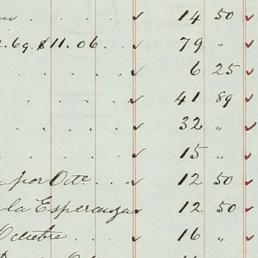 14 50
.69. $11.06. 79 "
6 25
41 89
32 "
15 "
por Octe. 12 50
la Esperanza 12 50
Octubre 16 "